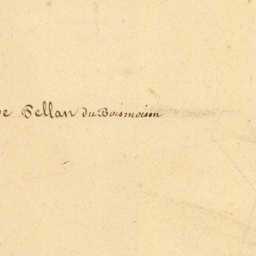 Pellan du Boismorin